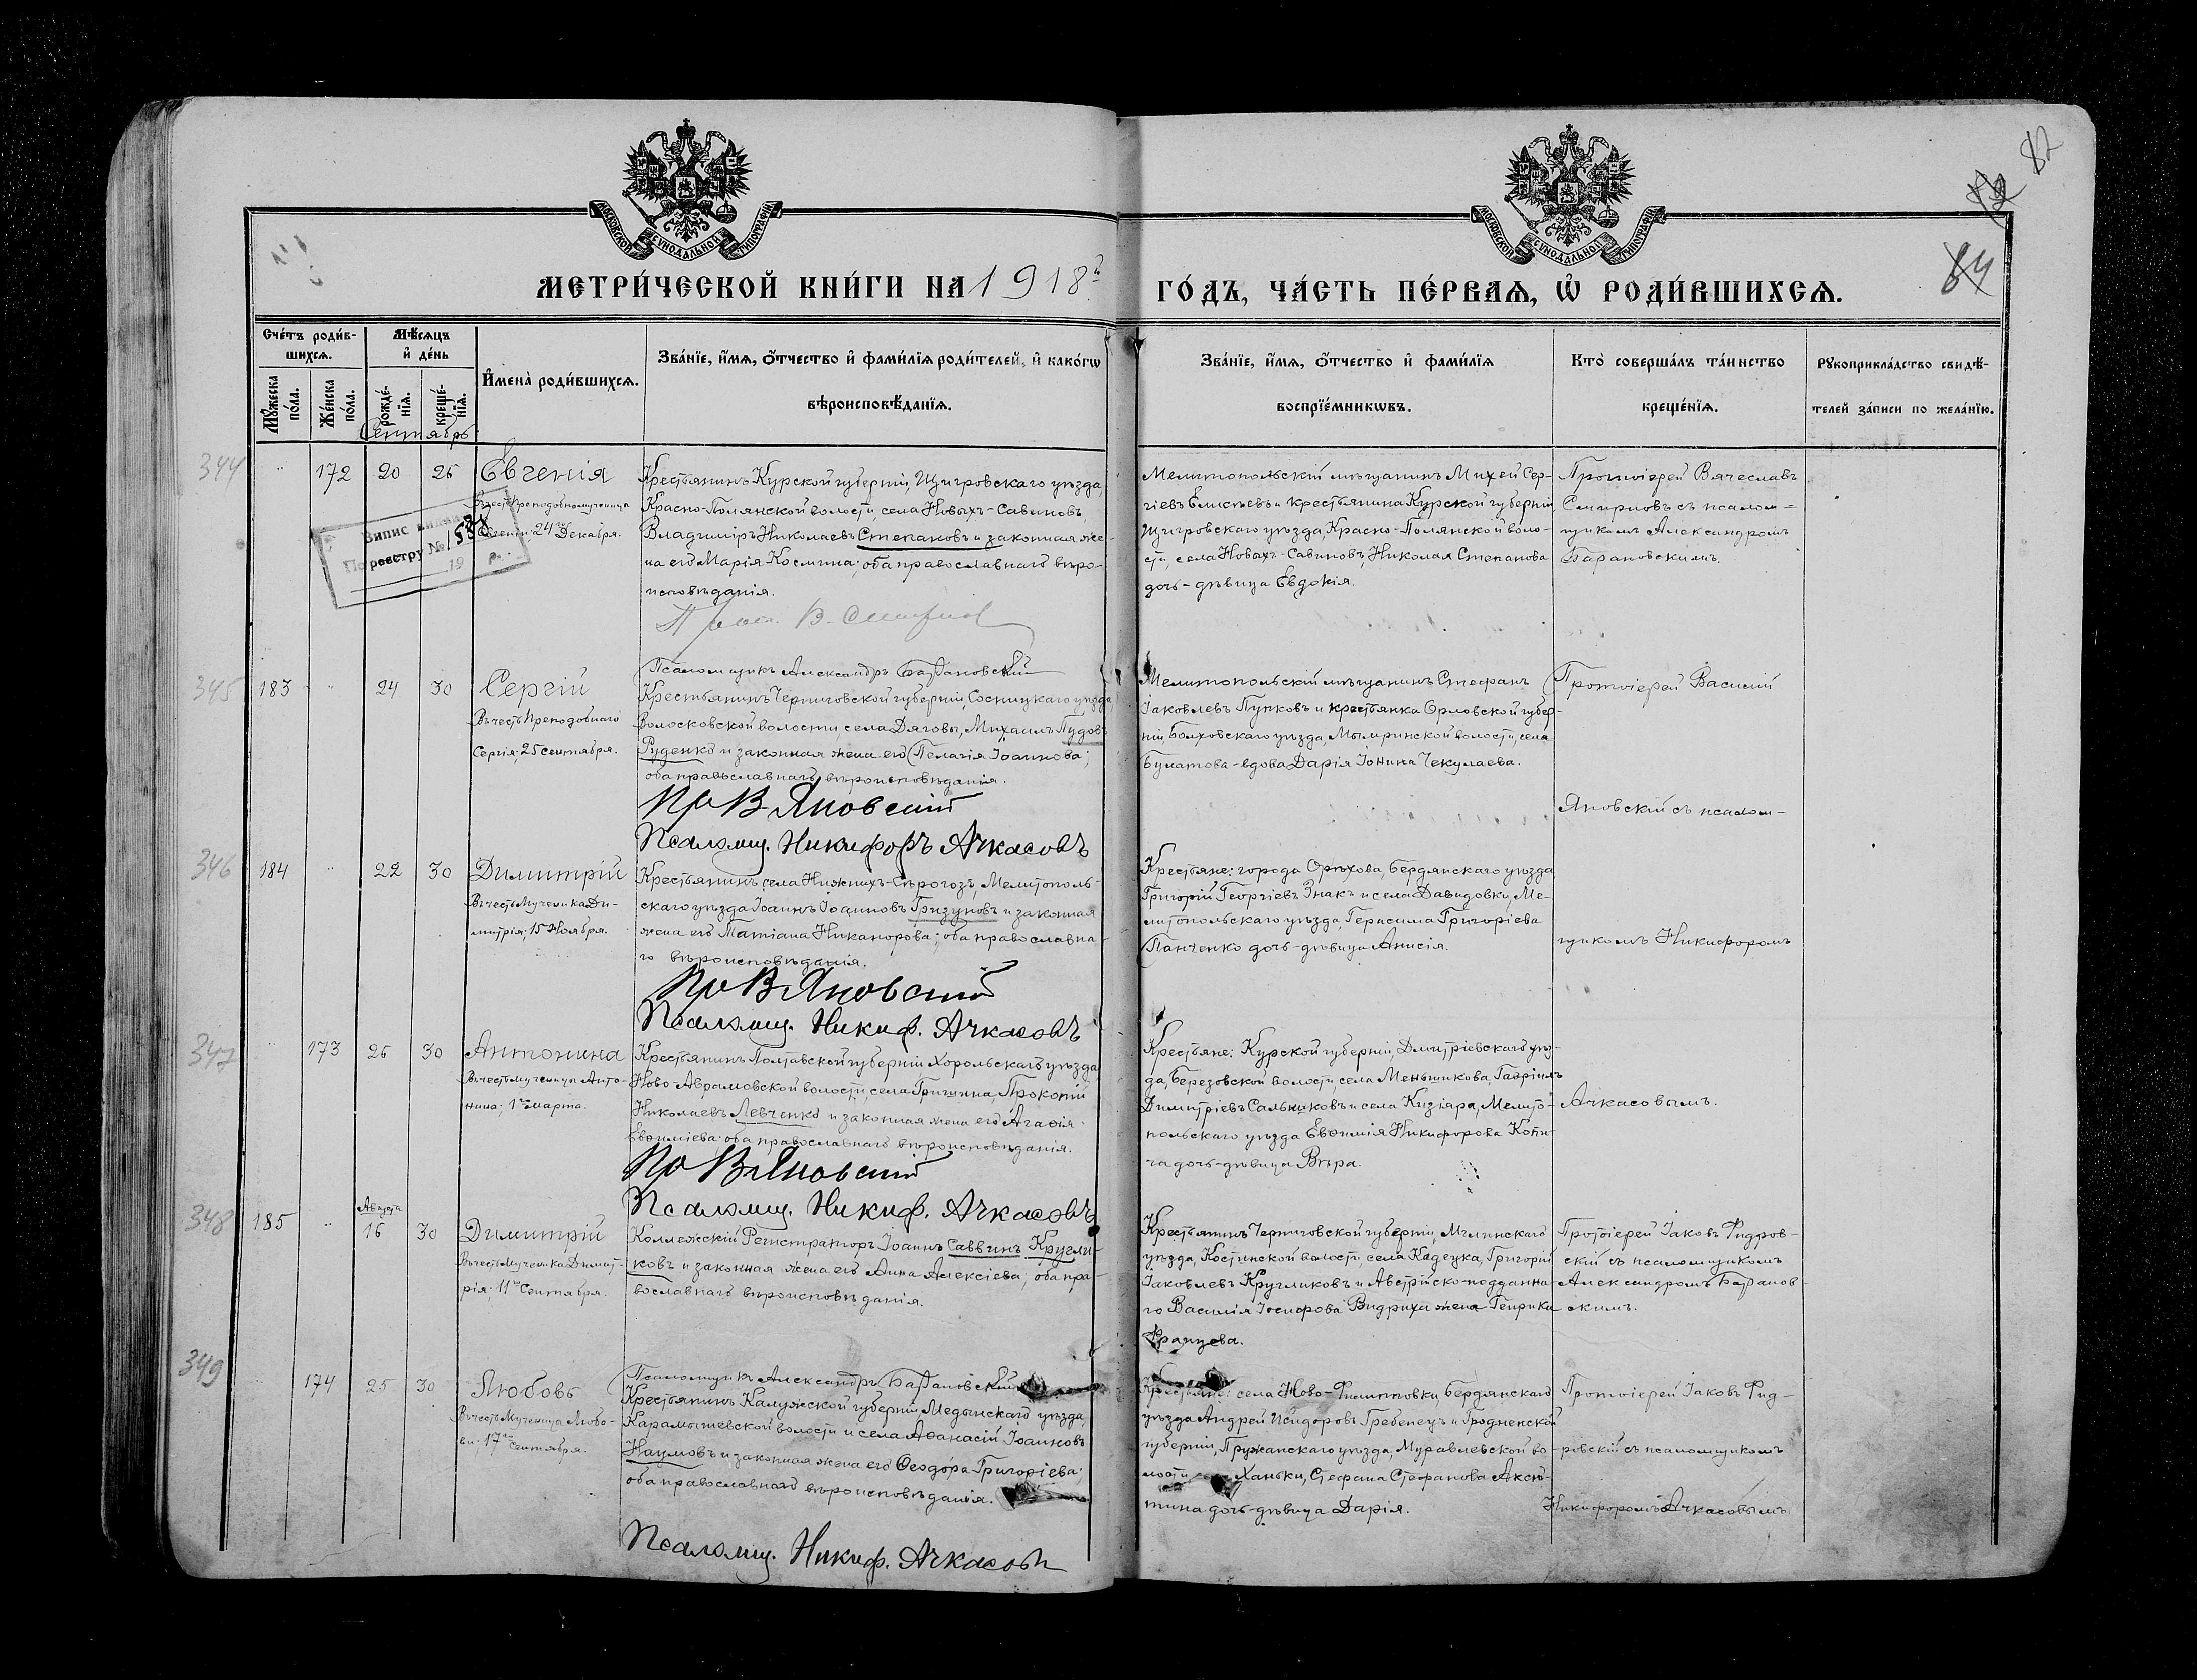 МОСКОВСКОЙ СѴНОДАЛЬНОЙ ТИПОГРАФІИ
МОСКОВСКОЙ СѴНОДАЛЬНОЙ ТИПОГРАФІИ
82
84
МЕТРИ́ЧЕСКОЙ КНИ́ГИ НА 1918й
ГО́ДЪ, ЧА́СТЬ ПЕ́РВАѦ, Ѡ҆ РОДИ́ВШИХСѦ.
Сче́тъ роди́в-
шихсѧ.
Мѣ́сѧцъ
и҆ де́нь
Мꙋ́жеска
по́ла.
Же́нска
по́ла.
рожде́-
нїѧ.
креще́-
нїѧ.
И҆мена̀ роди́вшихсѧ.
Зва́нїе, и҆́мѧ, ѻ҆́тчество и҆ фами́лїѧ роди́телей, и҆ како́гѡ
вѣроисповѣ́данїѧ.
Зва́нїе, и҆́мѧ, ѻ҆́тчество и҆ фами́лїѧ
воспрїе́мникѡвъ.
Кто̀ соверша́лъ та́инство
креще́нїѧ.
Рꙋкоприкла́дство свидѣ́-
телей за́писи по жела́нїю.
Сентябрь
344
172
20
26
Евгенія
Въ честь Преподобномученицы
Евгеніи 24го Декабря.
Випис видана
По реєстру №
19 р.
Крестьянинъ Курской губерніи, Щигровскаго уѣзда,
Красно-Полянской волости, села Новыхъ-Савиновъ,
Владиміръ Николаевъ Степановъ и законная же-
на его Марія Космина; оба православнаго вѣро-
исповѣданія.
Прот. В. Смирнов
Псаломщикъ Александръ Барановскій
Мелитопольскій мѣщанинъ Михей Сер-
гіевъ Елисѣевъ и крестьянина Курской губерніи
Щигровскаго уѣзда, Красно-Полянской воло-
сти, села Новыхъ-Савиновъ, Николая Степанова
дочь-дѣвица Евдокія.
Протоіерей Вячеславъ
Смирновъ съ псалом-
щикомъ Александромъ
Барановскимъ.
345
183
24
30
Сергій
Въ честь Преподобнаго
Сергія; 25 Сентября.
Крестьянинъ Черниговской губерніи, Сосницкаго уѣзда,
Волосковской волости, села Дяговы, Михаилъ Пудовъ
Руденко и законная жена его Пелагія Іоаннова;
оба православнаго вѣроисповѣданія.
Пр В Яновский
Псаломщ. Никифоръ Ачкасовъ
Мелитопольскій мѣщанинъ Стефанъ
Іаковлевъ Пупковъ и крестьянка Орловской губер-
ніи, Болховскаго уѣзда, Мымринской волости, села
Булатова-вдова Дарія Іонина Чекулаева.
Протоіерей Василій
Яновскій съ псалом-
346
184
22
30
Димитрій
Въ честь Мученика Ди-
митрія; 15 Ноября.
Крестьянинъ села Нижнихъ-Сѣрогозъ, Мелитополь-
скаго уѣзда Іоаннъ Іоанновъ Гризуновъ и законная
жена его Татіана Никанорова; оба православна-
го вѣроисповѣданія.
Пр В Яновский
Псаломщ. Никиф. Ачкасовъ
Крестьяне: города Орѣхова, Бердянскаго уѣзда
Григорій Георгіевъ Знакъ и села Давидовки, Ме-
литопольскаго уѣзда, Герасима Григоріева
Панченко дочь-дѣвица Анисія.
щикомъ Никифоромъ
347
173
26
30
Антонина
Въ честь мученицы Анто-
нины; 1го марта.
Крестьянинъ Полтавской губерніи Хорольскаго уѣзда,
Ново-Аврамовской волости, села Гришина, Прокопій
Николаевъ Левченко и законная жена его Агафія
Евѳиміева; оба православнаго вѣроисповѣданія.
Пр В Яновский
Псаломщ. Никиф. Ачкасовъ
Крестьяне: Курской губерніи, Дмитріевскаго уѣз-
да, Березовской волости, села Меньшикова, Гавріилъ
Димитріевъ Сальниковъ и села Кизіяра, Мелито-
польскаго уѣзда Евѳимія Никифорова Копи-
ча дочь-дѣвица Вѣра.
Ачкасовымъ.
348
185
Августа
16
30
Димитрій
Въ честь Мученика Димит-
рія; 11го Сентября.
Коллежскій Регистраторъ Іоаннъ Саввинъ Кругли-
ковъ и законная жена его Анна Алексіева; оба пра-
вославнаго вѣроисповѣданія.
Псаломщикъ Александръ Барановскій
Крестьянинъ Черниговской губерніи, Мглинскаго
уѣзда, Костинской волости, села Кадецка, Григорій
Іаковлевъ Кругликовъ и Австрійско-подданна-
го Василія Іосифова Видриха жена Генрика
Францева.
Протоіерей Іаковъ Фидров-
скій съ псаломщикомъ
Александромъ Баранов-
скимъ.
349
174
25
30
Любовь
Въ честь Мученицы Любо-
ви. 17го Сентября.
Крестьянинъ Калужской губерніи Медынскаго уѣзда,
Карамышевской волости и села Аѳанасій Іоанновъ
Наумовъ и законная жена его Ѳеодора Григоріева;
оба православнаго вѣроисповѣданія.
Псаломщ. Никиф. Ачкасовъ
Крестьяне: села Ново-Филиповки, Бердянскаго
уѣзда Андрей Исидоровъ Гребенецъ и Гродненской
губерніи, Пружанскаго уѣзда, Муравлевской во-
лости Ханьки, Стефана Стефанова Аксю-
тина дочь-дѣвица Дарія.
Протоіерей Іаковъ Фид-
ровскій съ псаломщикомъ
Никифоромъ Ачкасовымъ